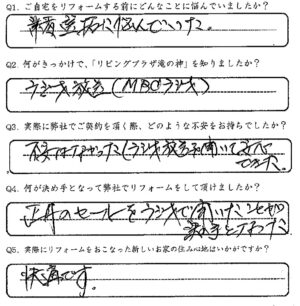 Q1. ご自宅をリフォームする前にどんなことに悩んでいましたか？
業者選択に悩んでいった。
Q2. 何がきっかけで、「リビングプラザ滝の神」を知りましたか？
ラジオ放送（MBCラジオ）
Q3. 実際に弊社でご契約を頂く際、どのような不安をお持ちでしたか？
なかった（ラジオ放送を聞いて安心
できた。
Q4. 何が決め手となって弊社でリフォームをして頂けましたか？
正月のセールをラジオで聞いたことが
決め手となった
Q5. 実際にリフォームをおこなった新しいお家の住み心地はいかがですか？
快適です。